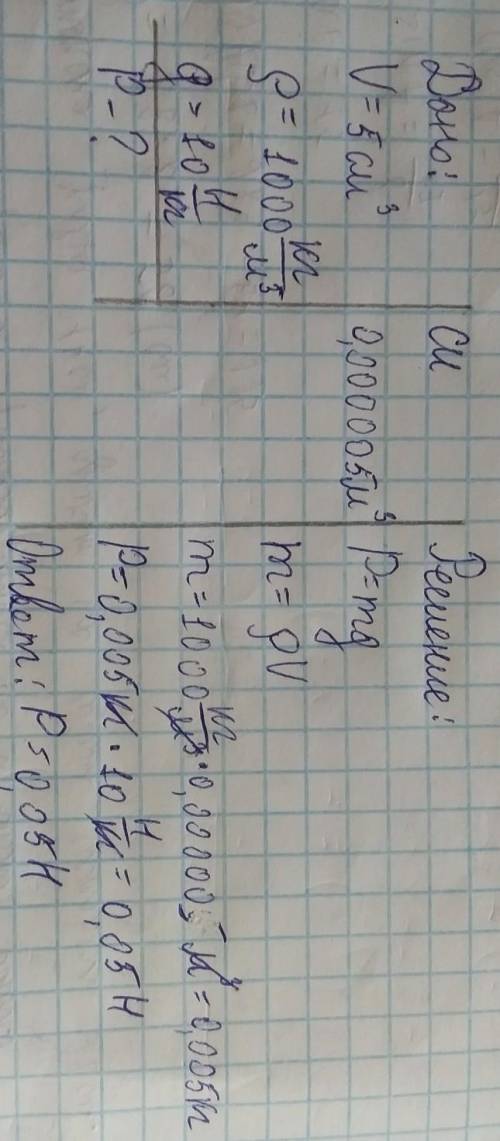 Дано:
V = 5 см³
ρ = 1000 кг/м³
g = 10 Н/кг
P - ?
СИ
0,000005м³
Решение:
P = mg
m = ρV
m = 1000 кг/м³ · 0,000005 м³ = 0,005кг
P = 0,005кг · 10 Н/кг = 0,05Н
Ответ: P = 0,05Н